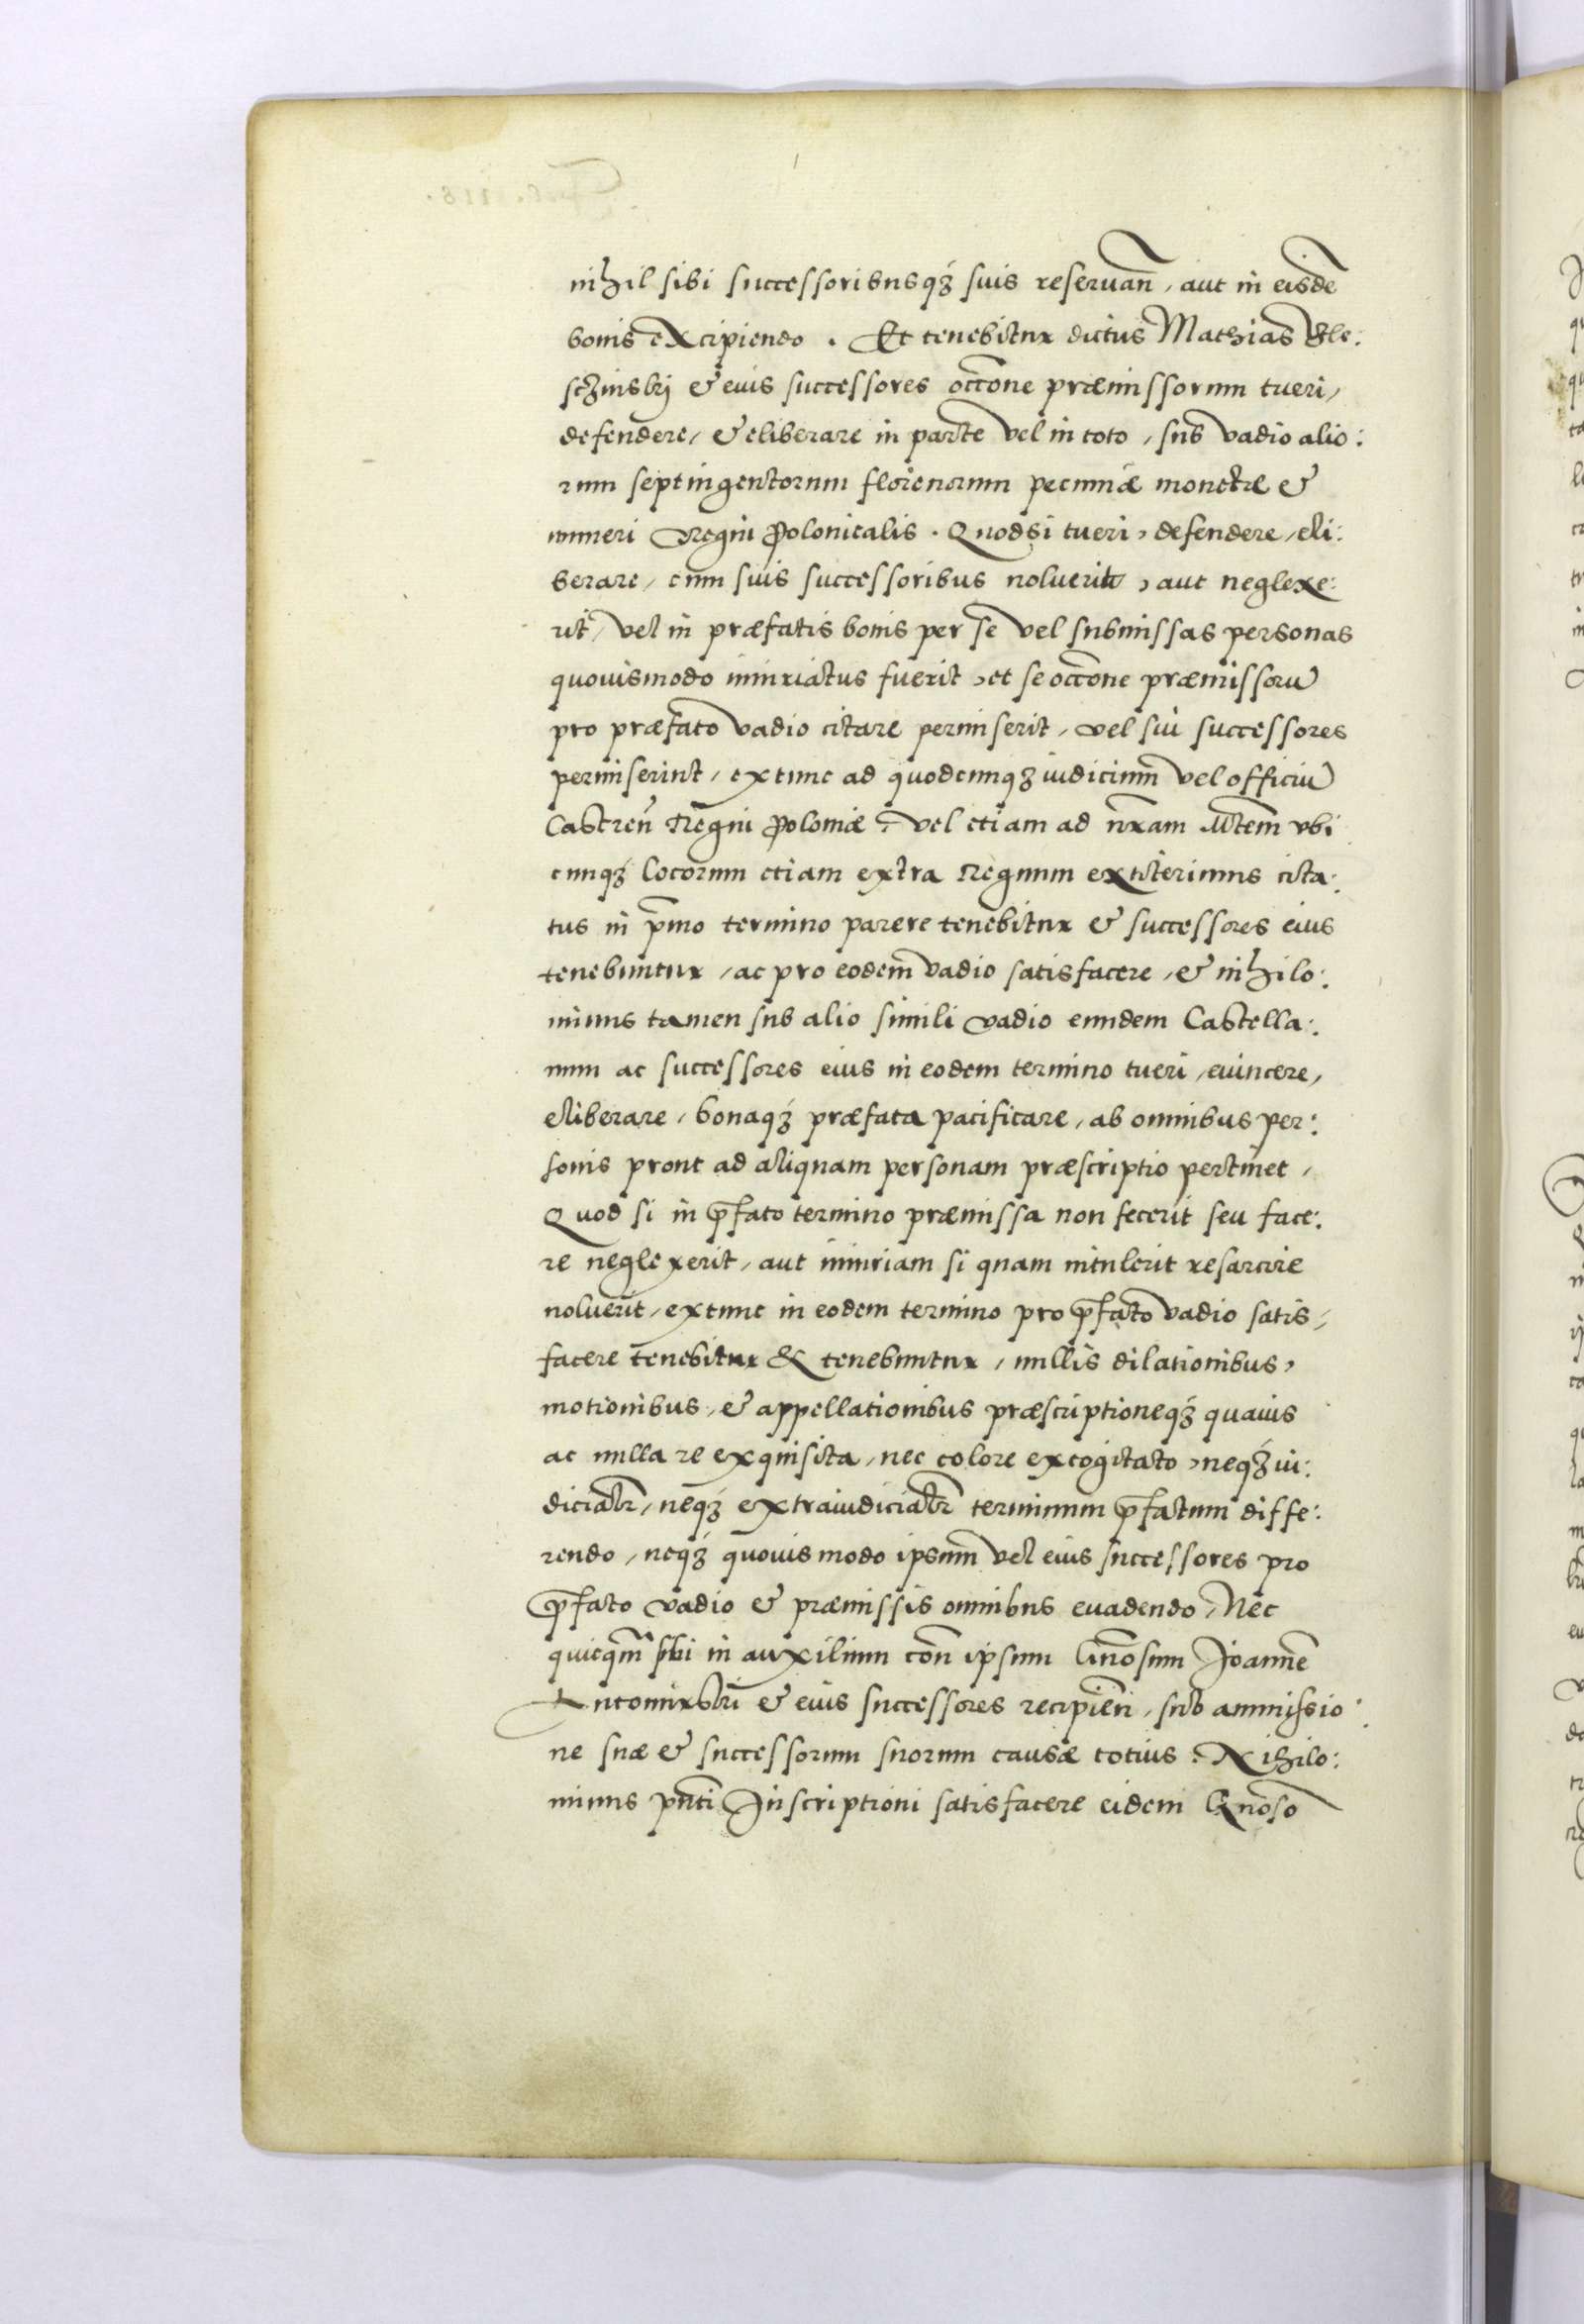 nihil sibi successoribusqꝫ suis reseruan̄, aut in eisdē
bonis excipiendo. Et tenebitur dictus Mathias Kle:
sczinskj & eius successores occōne præmissorum tueri,
defendere, & eliberare in parte vel in toto, sub vadio alio:
rum septingentorum florenorum pecuniæ monetæ &
numeri Regni Polonicalis. Quodsi tueri, defendere, eli:
berare, cum suis successoribus noluerit, aut neglexe:
rit, vel in præfatis bonis per se vel submissas personas
quouismodo iniuriatus fuerit, et se occōne præmissorū
pro præfato vadio citare permiserit, vel sui successores
permiserint, extunc ad quodcunqꝫ iudicium vel officiū
Castren̄ Regni Poloniæ, vel etiam ad nr̄am Mtem̄ vbi
cunqꝫ locorum etiam extra Regnum extiterimus cita:
tus in p̄mo termino parere tenebitur & successores eius
tenebuntur, ac pro eodem vadio satisfacere, & nihilo:
minus tamen sub alio simili vadio eundem Castella:
num ac successores eius in eodem termino tueri, euincere,
eliberare, bonaqꝫ præfata pacificare, ab omnibus per:
sonis prout ad aliquam personam præscriptio pertinet,
Quod si in p̄fato termino præmissa non fecerit seu face:
re neglexerit, aut iniuriam si quam intulerit resarcire
noluerit, extunc in eodem termino pro p̄fato vadio satis,
facere tenebitur & tenebuntur, nullis dilationibus,
motionibus, & appellationibus præscriptioneqꝫ quauis
ac nulla re exquisita, nec colore excogitato, neqꝫ iu:
dicialr̄, neqꝫ extraiudicialr̄ terminum p̄fatum diffe:
rendo, neqꝫ quouis modo ipsum vel eius successores pro
p̄fato vadio & præmissis omnibus euadendo, Nec
quicqm̄ sibi in auxilium con̄ ipsum Gn̄osum Joannē
& eius successores recipien̄, sub ammissio:
ne suæ & successorum suorum causæ totius. Nihilo:
minus pn̄ti Inscriptioni satisfacere eidem Gn̄oso